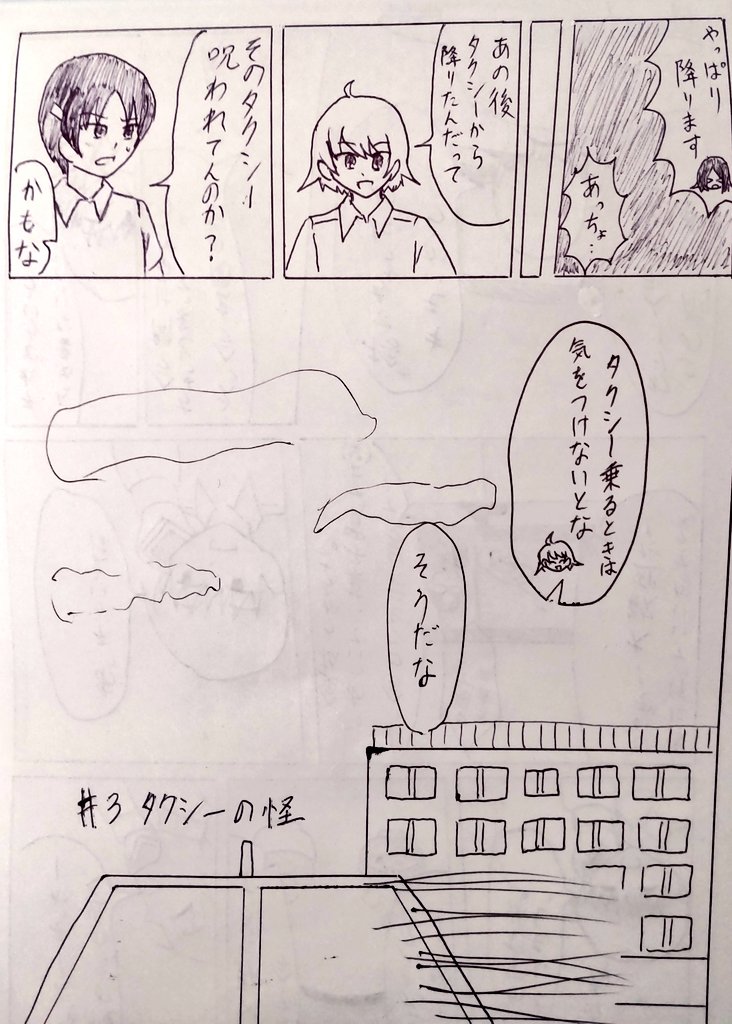 やっぱり
降ります
あっちょ…
あの後
タクシーから
降りたんだって
そのタクシー
呪われてんのか？
かもな
タクシー乗るときは
気をつけないとな
そうだな
#3 タクシーの怪